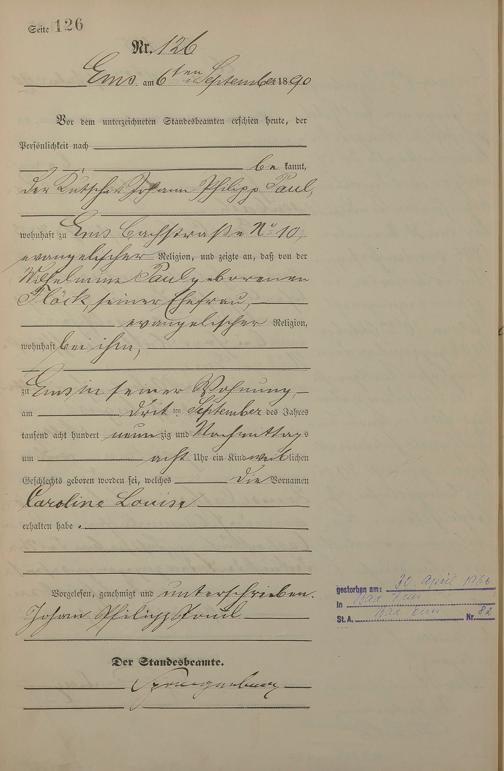 Seite 126
Nr. 126
Ems am 6ten September 1890
Vor dem unterzeichneten Standesbeamten erschien heute, der
Persönlichkeit nach
be kannt,
der Kutscher Johann Philipp Paul,
wohnhaft zu Ems Bachstraße No 10,
evangelischer Religion, und zeigte an, daß von der
Wilhelmine Paul geborenen
Flöck, seiner Ehefrau,
evangelischer Religion,
wohnhaft bei ihm,
zu Ems in seiner Wohnung,
am dritten September des Jahres
tausend acht hundert neunzig und Nachmittags
um acht Uhr ein Kind weiblichen
Geschlechts geboren worden sei, welches die Vornamen
Caroline Louise
erhalten habe.
Vorgelesen, genehmigt und unterschrieben.
Johan Philipp Paul
Der Standesbeamte.
gestorben am: 30 April
in Bad Ems
St. A. Bad Ems Nr. 82